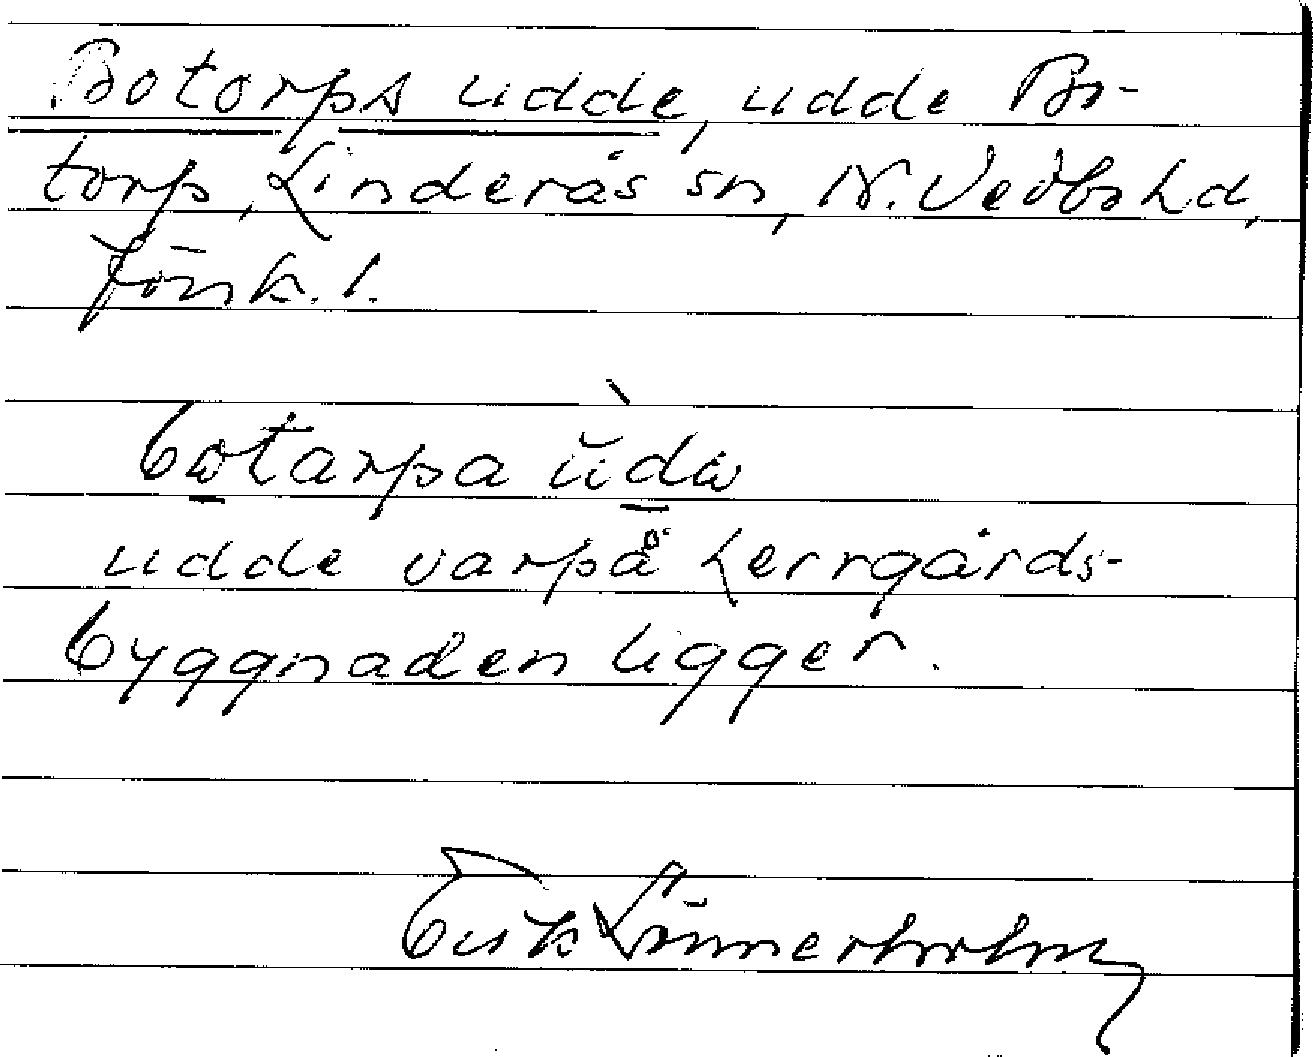 Botorps udde, udde Bo-
torp, Linderås sn, N. Vedbo hd,
Jönk. l.
botarpa ùdɷ
udde varpå herrgårds-
byggnaden ligger.
Erik Lönnerholm